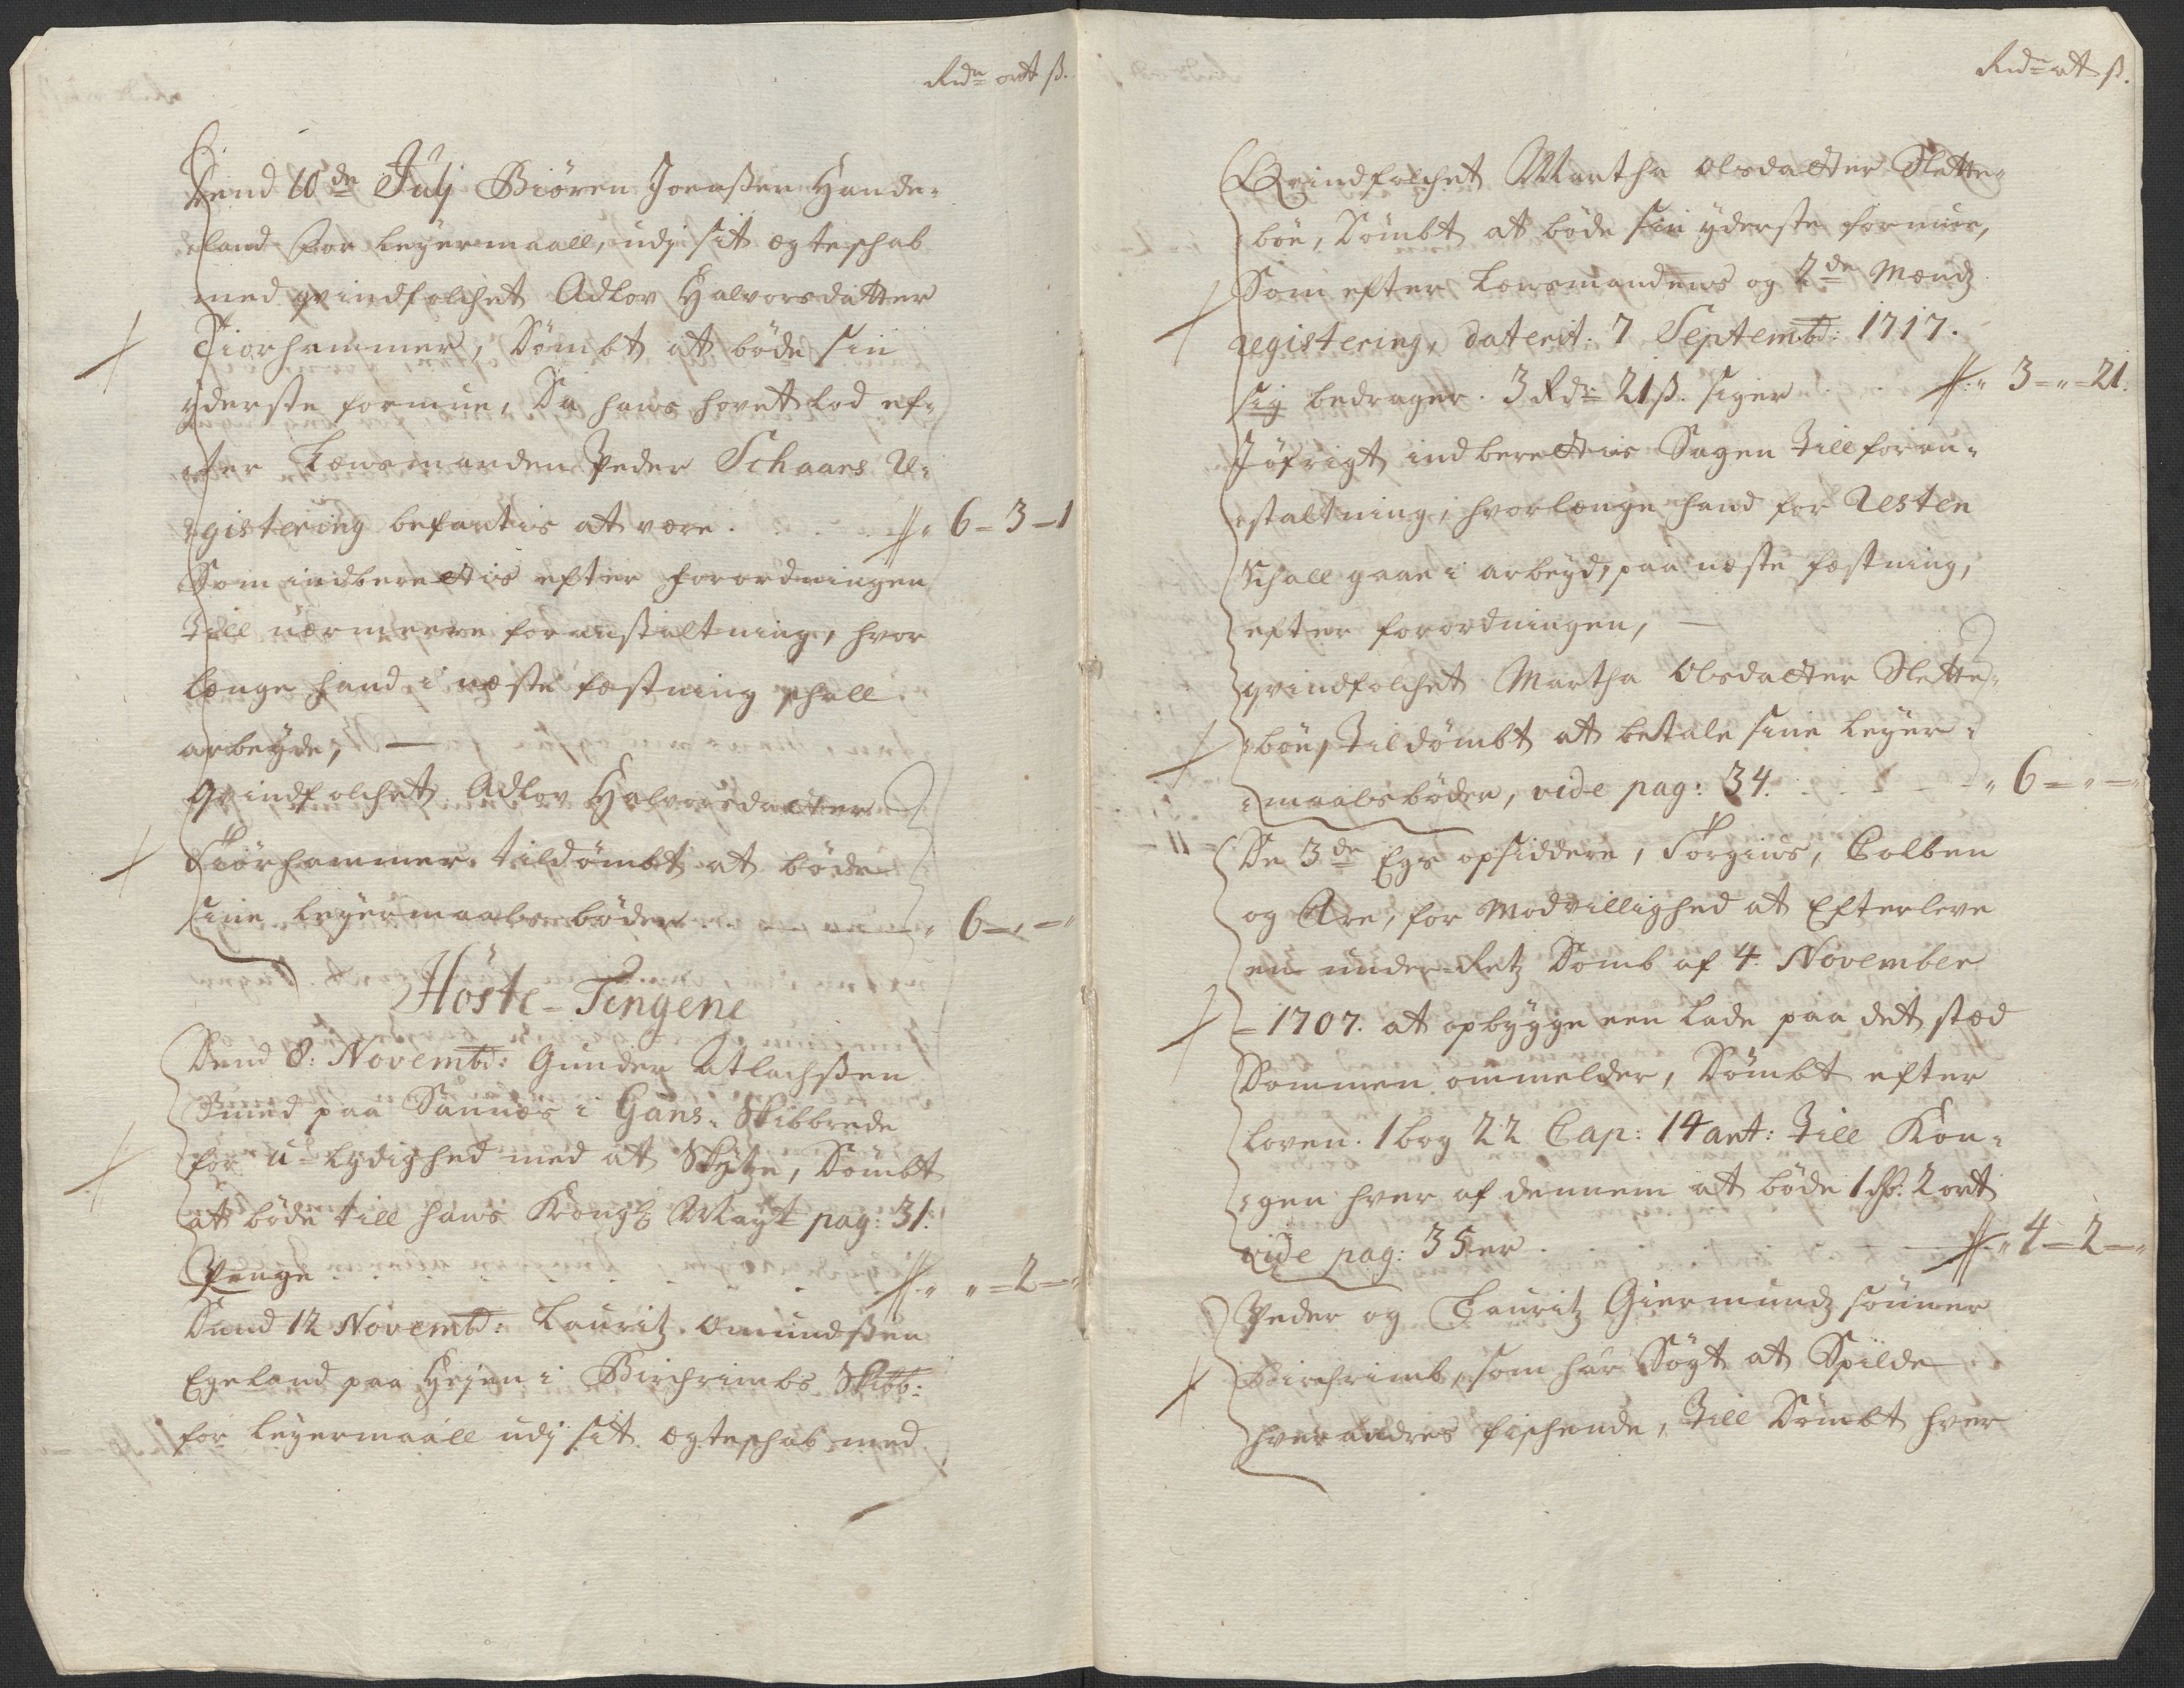 Rdr ort ß.
Dend 10de Julj Biören Joenßen Hande-
land for leyermaall, udj sit egteschab
med qvindfolchet Adlov Halvorsdatter
Fiorhammer, Dömbt at böde sin
yderste formue, Da hans hovet lod ef-
ter Lensmanden Peder Schaars Re-
gistering befantis at vere . . . 6 - 3 - 1
Som indberettis efter forordningen
Till nermeere foranstaltning, hvor
lenge hand i neste festning schall
arbeyde, —
Qvindfolchet Adlov Halvorsdatter
Fiörhammer, tildömbt at böde
sine leyermaals böder . . . 6 - " - "
Höste-Tingene
Dend 8: Novembr: Gunder Atlachßen
Smed paa Sannes i Gans Skibbrede
for u-lydighed med at Skytze, Dömbt
at böde till hans Kongl Mayt pag: 31.
Penge . . . " = 2 - "
Dend 12 Novembr: Lauritz Omundßen
Egeland paa Heyen i Birchrimbs Skibb:
for leyermaall udj sit egteschab med
Rdr ort ß.
Qvindfolchet Martha Olsdatter Slette-
böe, Dömbt at böde sin yderste formue,
Som efter Lensmandens og 2de Mends
registering, daterit: 7 Septembr: 1717.
sig bedrager. 3 Rdr 21 ß. siger . . . 3 - " - 21.
Jöfrigt indberettis Sagen till foran-
staltning, hvorlenge hand for Resten
Schall gaae i arbeyd, paa neste festning,
efter forordningen, —
qvindfolchet Martha Olsdatter Slette-
böe, Tildömbt at betale sine leyer-
maalsböder, vide pag: 34. . . . 6 = " = "
De 3de Egs opsiddere, Torgius, Colben
og Are, for Modvillighed at Efterleve
en under-Retz Domb af 4. November
1707. at opbygge een lade paa det sted
Dommen ommelder, Dömbt efter
loven. 1 bog 22 Cap: 14 art: till Kon-
gen hver af dennem at böde 1 Rdr. 2 ort
vide pag: 35er . . . 4 = 2 = "
Peder og Lauritz Giermundz sönner
Birchrimb, som har Sögt at Spilde
hverandres fischende, till Dömbt hver